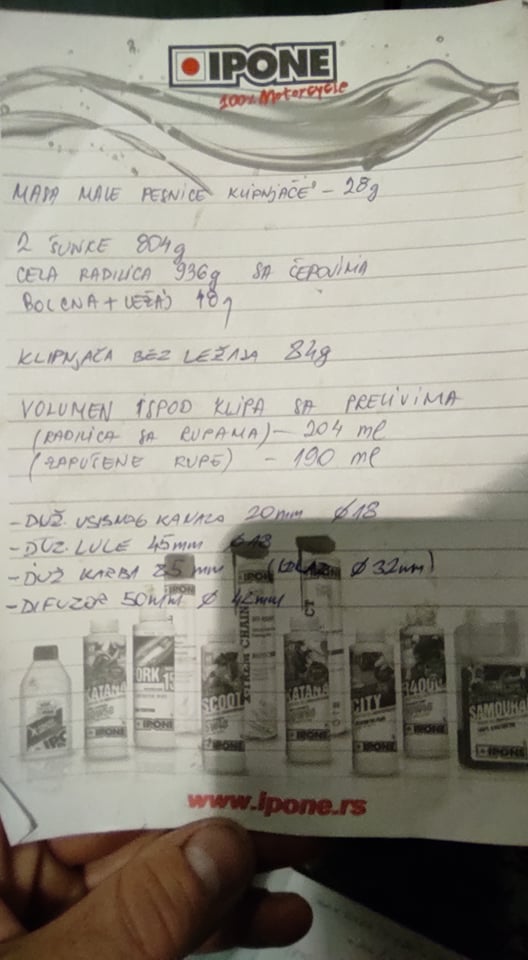 IPONE
100% Motorcycle
MASA MALE PESNICE KLIPNJAČE - 28g
2 ŠUNKE 804g
CELA RADILICA 936g SA ČEPOVIMA
BOLCNA + LEŽAJ 48g
KLIPNJAČA BEZ LEŽAJA 84g
VOLUMEN ISPOD KLIPA SA PRELIVIMA
(RADILICA SA RUPAMA) - 204 ml
(ZAPUŠENE RUPE) - 190 ml
- DUŽ. USISNOG KANALA 20mm Ø18
- DUŽ. LULE 45mm Ø18
- DUŽ KARBA 85mm (IZLAZ Ø 32mm)
- DIFUZOR 50mm Ø 42mm
KATANA
FORK 15
SCOOT
KATANA
CITY
R4000
SAMOURAI
IPONE
IPONE
IPONE
IPONE
IPONE
IPONE
IPONE
www.ipone.rs